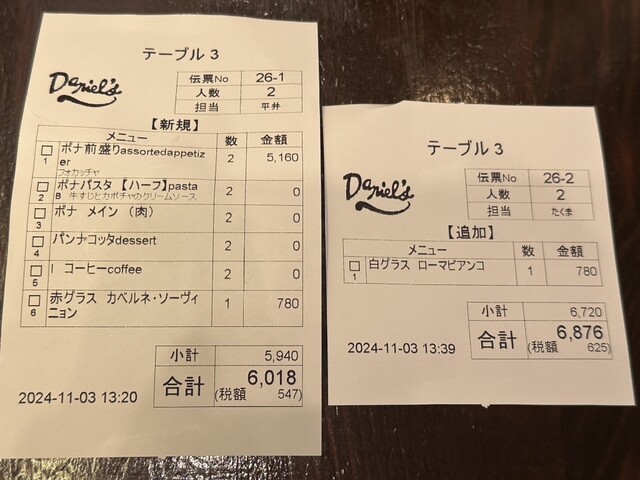 テーブル 3
Daniel's
伝票No 26-1
人数 2
担当 平井
【新規】
メニュー 数 金額
1 ボナ前盛りassortedappetiz 2 5,160
er
フォカッチャ
2 ボナパスタ 【ハーフ】pasta 2 0
B 牛すじとカボチャのクリームソース
3 ボナ メイン (肉) 2 0
4 パンナコッタdessert 2 0
5 I コーヒーcoffee 2 0
6 赤グラス カベルネ・ソーヴィ 1 780
ニョン
小計 5,940
合計 6,018
(税額 547)
2024-11-03 13:20
テーブル 3
Daniel's
伝票No 26-2
人数 2
担当 たくま
【追加】
メニュー 数 金額
1 白グラス ローマビアンコ 1 780
小計 6,720
合計 6,876
(税額 625)
2024-11-03 13:39